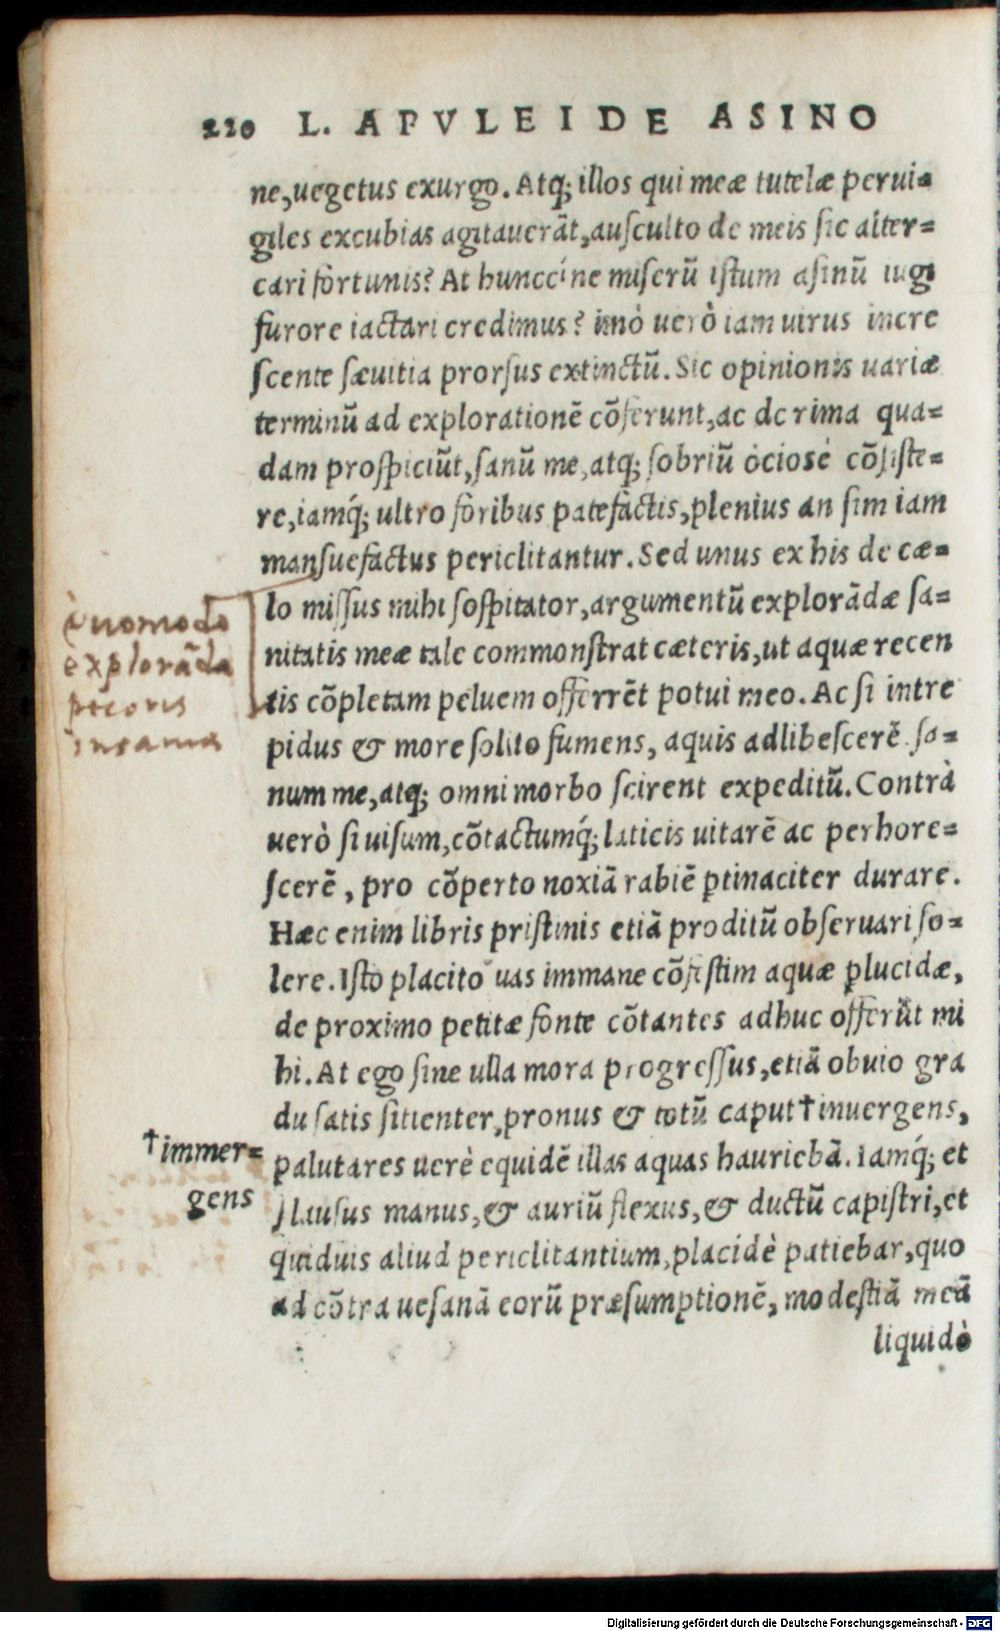 220 L. APVLEI DE ASINO
ne,uegetus exurgo. Atq; illos qui meæ tutelæ perui=
giles excubias agitauerãt,auſculto de meis ſic alter=
cari fortunis? At hunccíne miſerũ iſtum aſinũ iugi
furore iactari credimus? imò uerò iam uirus incre
ſcente ſæuitia prorſus extinctũ. Sic opinionis uariæ
terminũ ad explorationẽ cõferunt,ac de rima qua=
dam proſpiciũt,ſanũ me,atq; ſobriũ ociosè cõſiſte=
re,iamq́; ultro foribus patefactis,plenius an ſim iam
manſuefactus periclitantur. Sed unus ex his de cæ=
lo miſſus mihi ſoſpitator,argumentũ explorãdæ ſa=
nitatis meæ tale commonſtrat cæteris,ut aquæ recen
tis cõpletam peluem offerrẽt potui meo. Ac ſi intre
pidus & more ſolito ſumens, aquis adlibeſcerẽ ſa=
num me,atq; omni morbo ſcirent expeditũ. Contrà
uerò ſi uiſum,cõtactumq́; laticis uitarẽ ac perhore=
ſcerẽ, pro cõperto noxiã rabiẽ ꝑtinaciter durare.
Hæc enim libris priſtinis etiã proditũ obſeruari ſo=
lere. Iſto placito uas immane cõfeſtim aquæ ꝑlucidæ,
de proximo petitæ fonte cõtantes adhuc offerũt mi
hi. At ego ſine ulla mora progreſſus,etiã obuio gra
du ſatis ſitienter,pronus & totũ caput†inuergens,
ſalutares uerè equidẽ illas aquas hauriebã. Iamq́; et
plauſus manus,& auriũ flexus,& ductũ capiſtri,et
quiduis aliud periclitantium,placidè patiebar,quo
ad cõtra ueſanã eorũ præſumptionẽ, modeſtiã meã
liquidò
Quomodo
explorãda
pecoris
insania
†immer=
gens
Digitalisierung gefördert durch die Deutsche Forschungsgemeinschaft - DFG